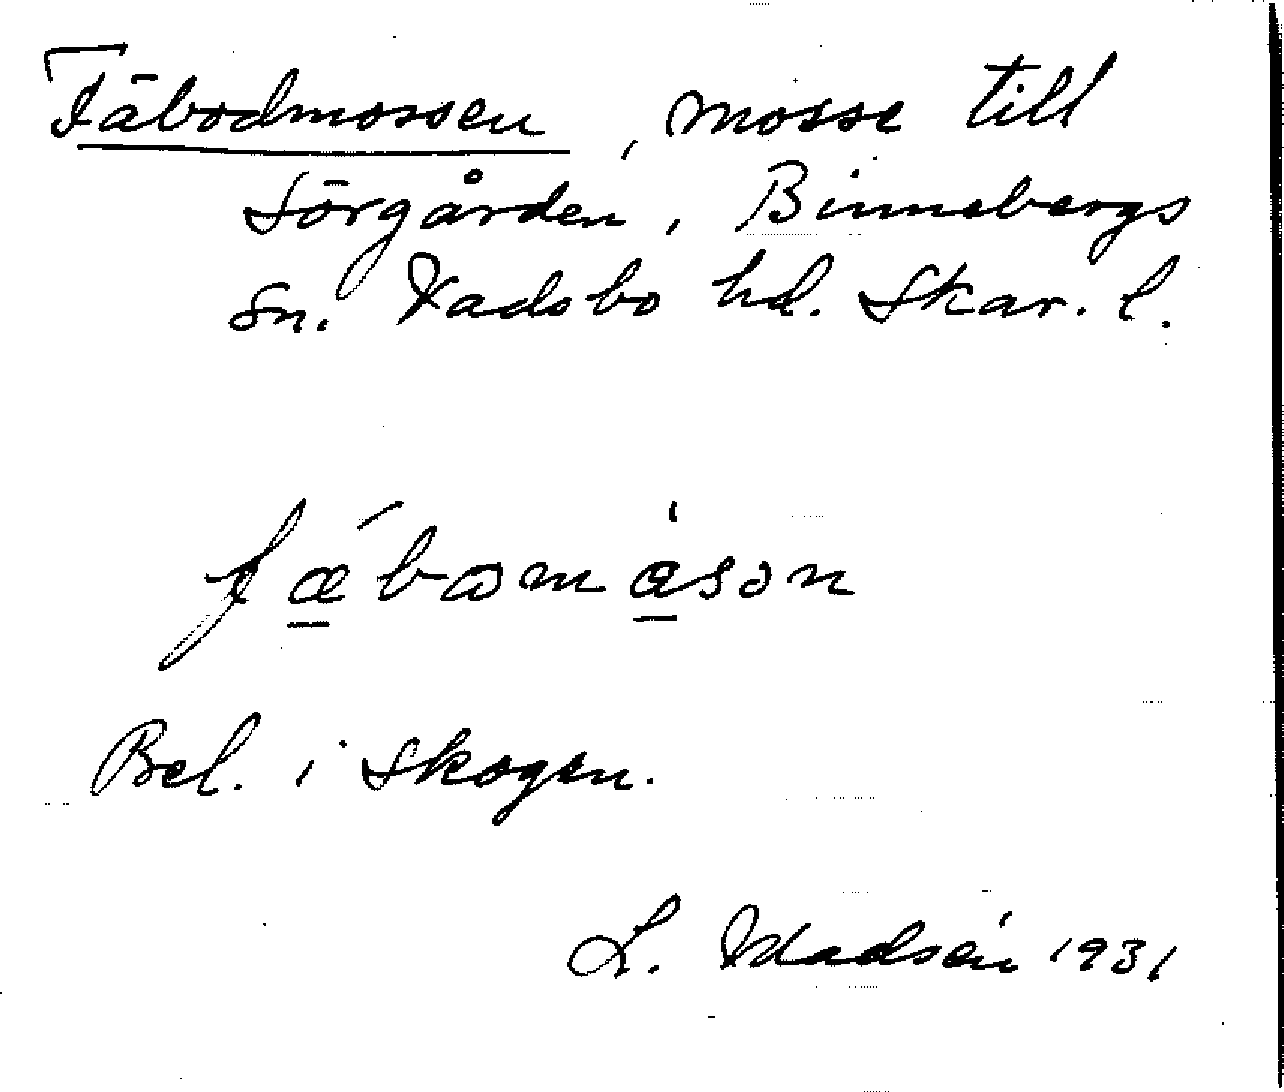 Fäbodmossen, mosse till
Sörgården, Binnebergs
sn. Vadsbo hd. Skar. l.
fæ´bωmå̀sən
Bel. i skogen.
L. Madsén 1931